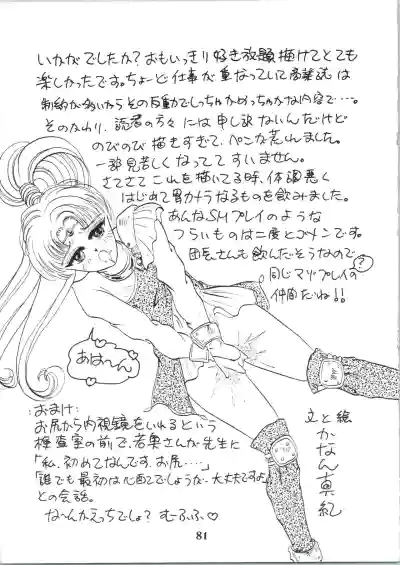 いかがでしたか?おもいっきり好き放題描けてとても
楽しかったです。ちょーど仕事が重なっていて商業誌は
制約が多いからその反動でしっちゃかめっちゃかな内容で…。
そのかわり、読者の方々には申し訳ないんだけど
のびのび描きすぎて、ペンが荒れました。
一部見苦しくなっててすいません。
さてさてこれを描いてる時、体調悪く
はじめて胃カメラなるものを飲みました。
あんなSMプレイのような
つらいものは二度とゴメンです。
団長さんも飲んだそうなので
同じマゾプレイの?
仲間だね!!
あは〜ん
おまけ:
お尻から内視鏡をいれるという
検査室の前で、若奥さんが先生に
「私、初めてなんです、お尻…」
「誰でも最初は心配でしょうが…大丈夫ですよ」
との会話。
な〜んかえっちでしょ?むーふふ♡
文と絵
かなん真紀
81